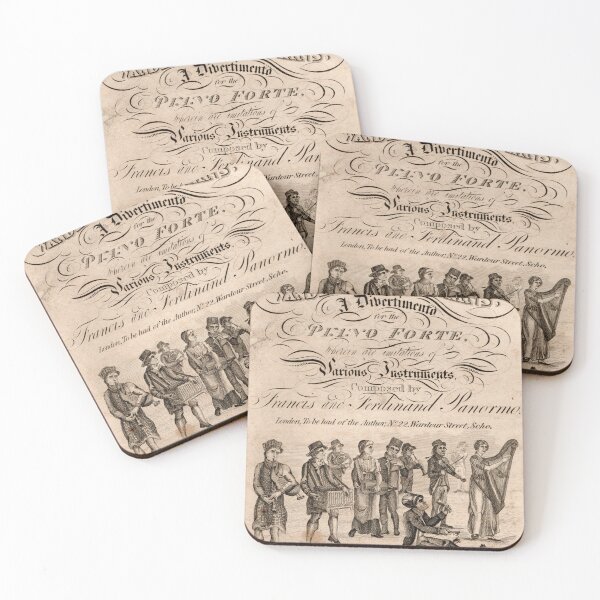 A Divertimento
for the
PIANO FORTE.
wherein are imitations of
Various Instruments,
Composed by
Francis and Ferdinand Panormo.
London, To be
A Divertimento
for the
PIANO FORTE.
wherein are imitations of
Various Instruments,
Composed by
Francis and Ferdinand Panormo.
London, To be had of the Author, No. 22, Wardour Street, Soho.
A Divertimento
for the
PIANO FORTE.
wherein are imitations of
Various Instruments,
Composed by
Francis and Ferdinand Panormo.
London, To be had of the Author, No. 22, Wardour Street, Soho.
A Divertimento
for the
PIANO FORTE.
wherein are imitations of
Various Instruments,
Composed by
Francis and Ferdinand Panormo.
London, To be had of the Author, No. 22, Wardour Street, Soho.